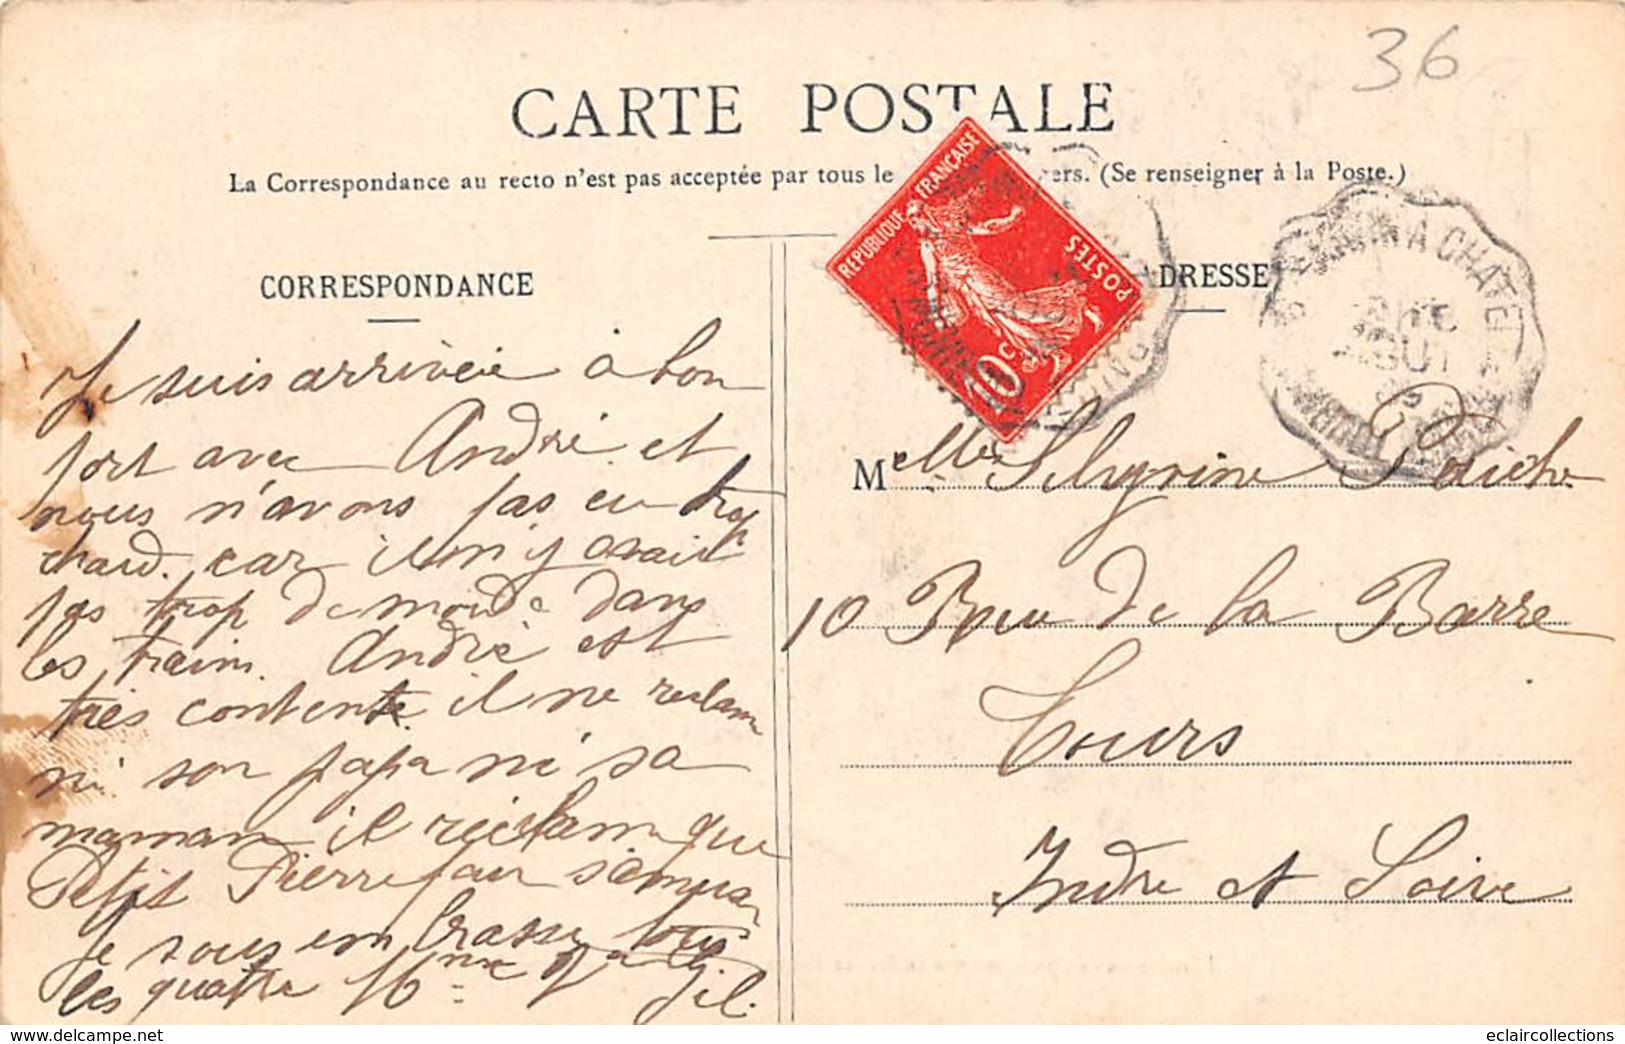 36
CARTE POSTALE
La Correspondance au recto n'est pas acceptée par tous le ers. (Se renseigner à la Poste.)
REPUBLIQUE FRANÇAISE
POSTES
10 c
CORRESPONDANCE
ADRESSE
Je suis arrivéée à bon
port avec André et
nous n'avons pas eu trop
chaud. car il n'y avait
pas trop de monde dans
les train. André est
très content il ne reclam
ni son papa ni sa
maman il réclam que
Petit Pierre pour s'amuser
Je vous embrasse tous
les quatre
Melle Poiche
10 Rue de la Barre
Tours
Indre et Loire
A CHATE
AOUT
eclaircollections
www.delcampe.net